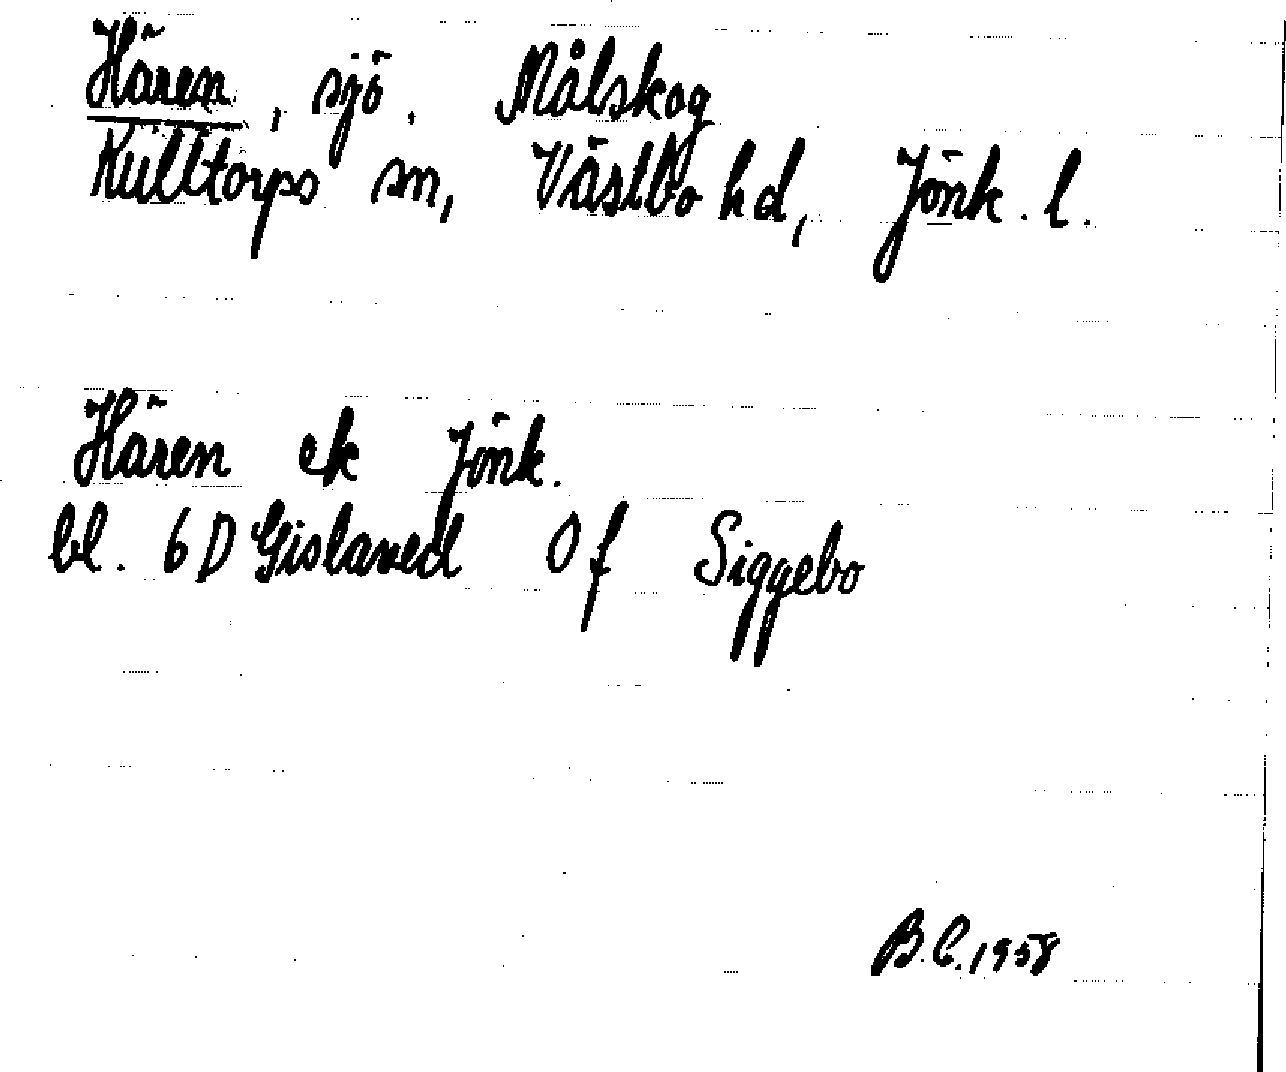 Hären, sjö. Målskog
Kulltorps sn, Västbo hd, Jönk. l.
Hären ek Jönk.
bl. 6D Gislaved 0f Siggebo
B.C. 1958